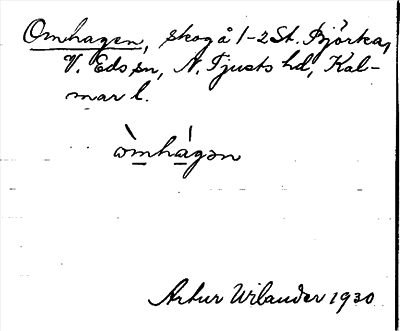 Omhagen, skog å 1-2 St. Björka,
V. Eds sn, N. Tjusts hd, Kal-
mar l.
òmhágən
Artur Wilander 1930